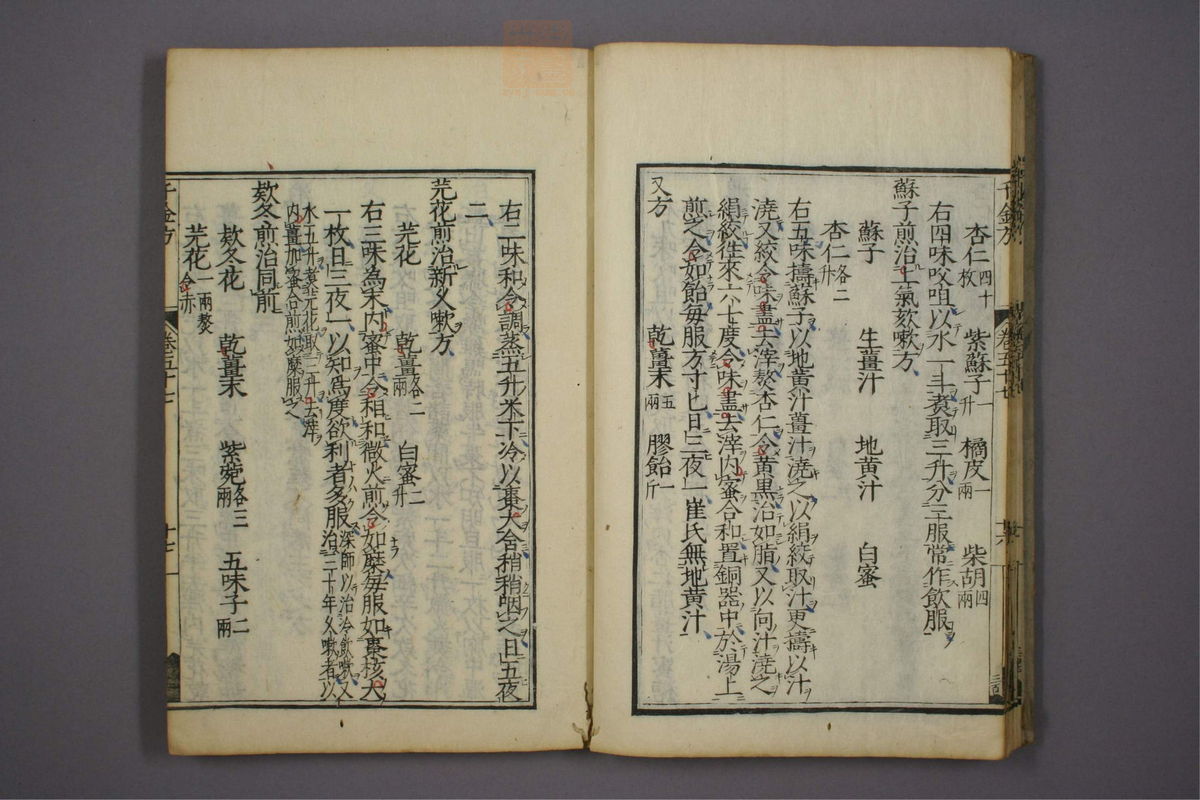 杏仁四十枚 紫蘇子一升 橘皮一兩 柴胡四兩
右四味㕮咀以水一斗煮取三升分三服常作飲服
蘇子煎治上氣欬嗽方
蘇子 生薑汁 地黃汁 白蜜
杏仁各二升
右五味擣蘇子以地黃汁薑汁澆之以絹絞取汁更擣以汁
澆又絞令味盡去滓熬杏仁令黃黑治如脂又以向汁澆之
絹絞往來六七度令味盡去滓內蜜合和置銅器中於湯上
煎之令如飴每服方寸匕日三夜一崔氏無地黃汁
又方 乾薑末五兩 膠飴一斤
右二味和令調蒸五升米下冷以棗大含稍稍咽之日五夜
二
芫花煎治新久嗽方
芫花 乾薑各二兩 白蜜一升
右三味為末內蜜中令相和微火煎令如糜每服如棗核大
一枚日三夜一以知為度欲利者多服深師以治冷飲嗽又
治三十年久嗽者以
水五升煮芫花取三升去滓
內薑加蜜合煎如糜服之
欬冬煎治同前
欬冬花 乾薑末 紫菀各三兩 五味子二兩
芫花一兩熬令赤
千金方 卷五十七 十七